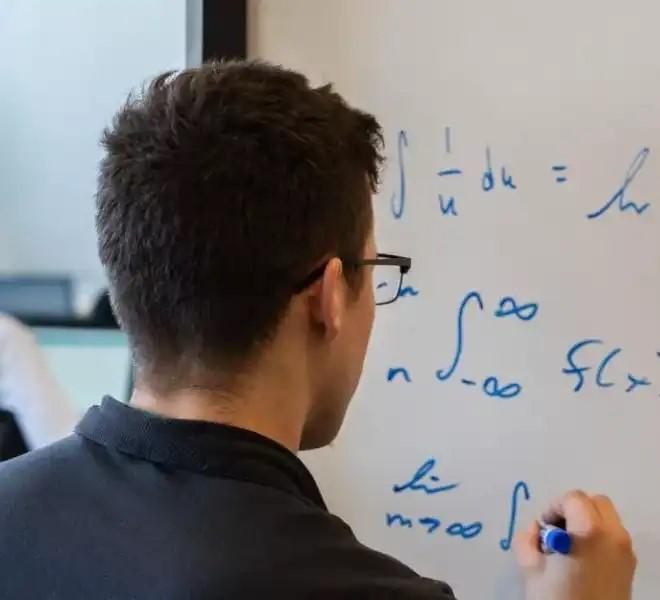 ∫ 1/u du = ln
n ∫_{-∞}^{∞} f(x
lim_{m→∞} ∫